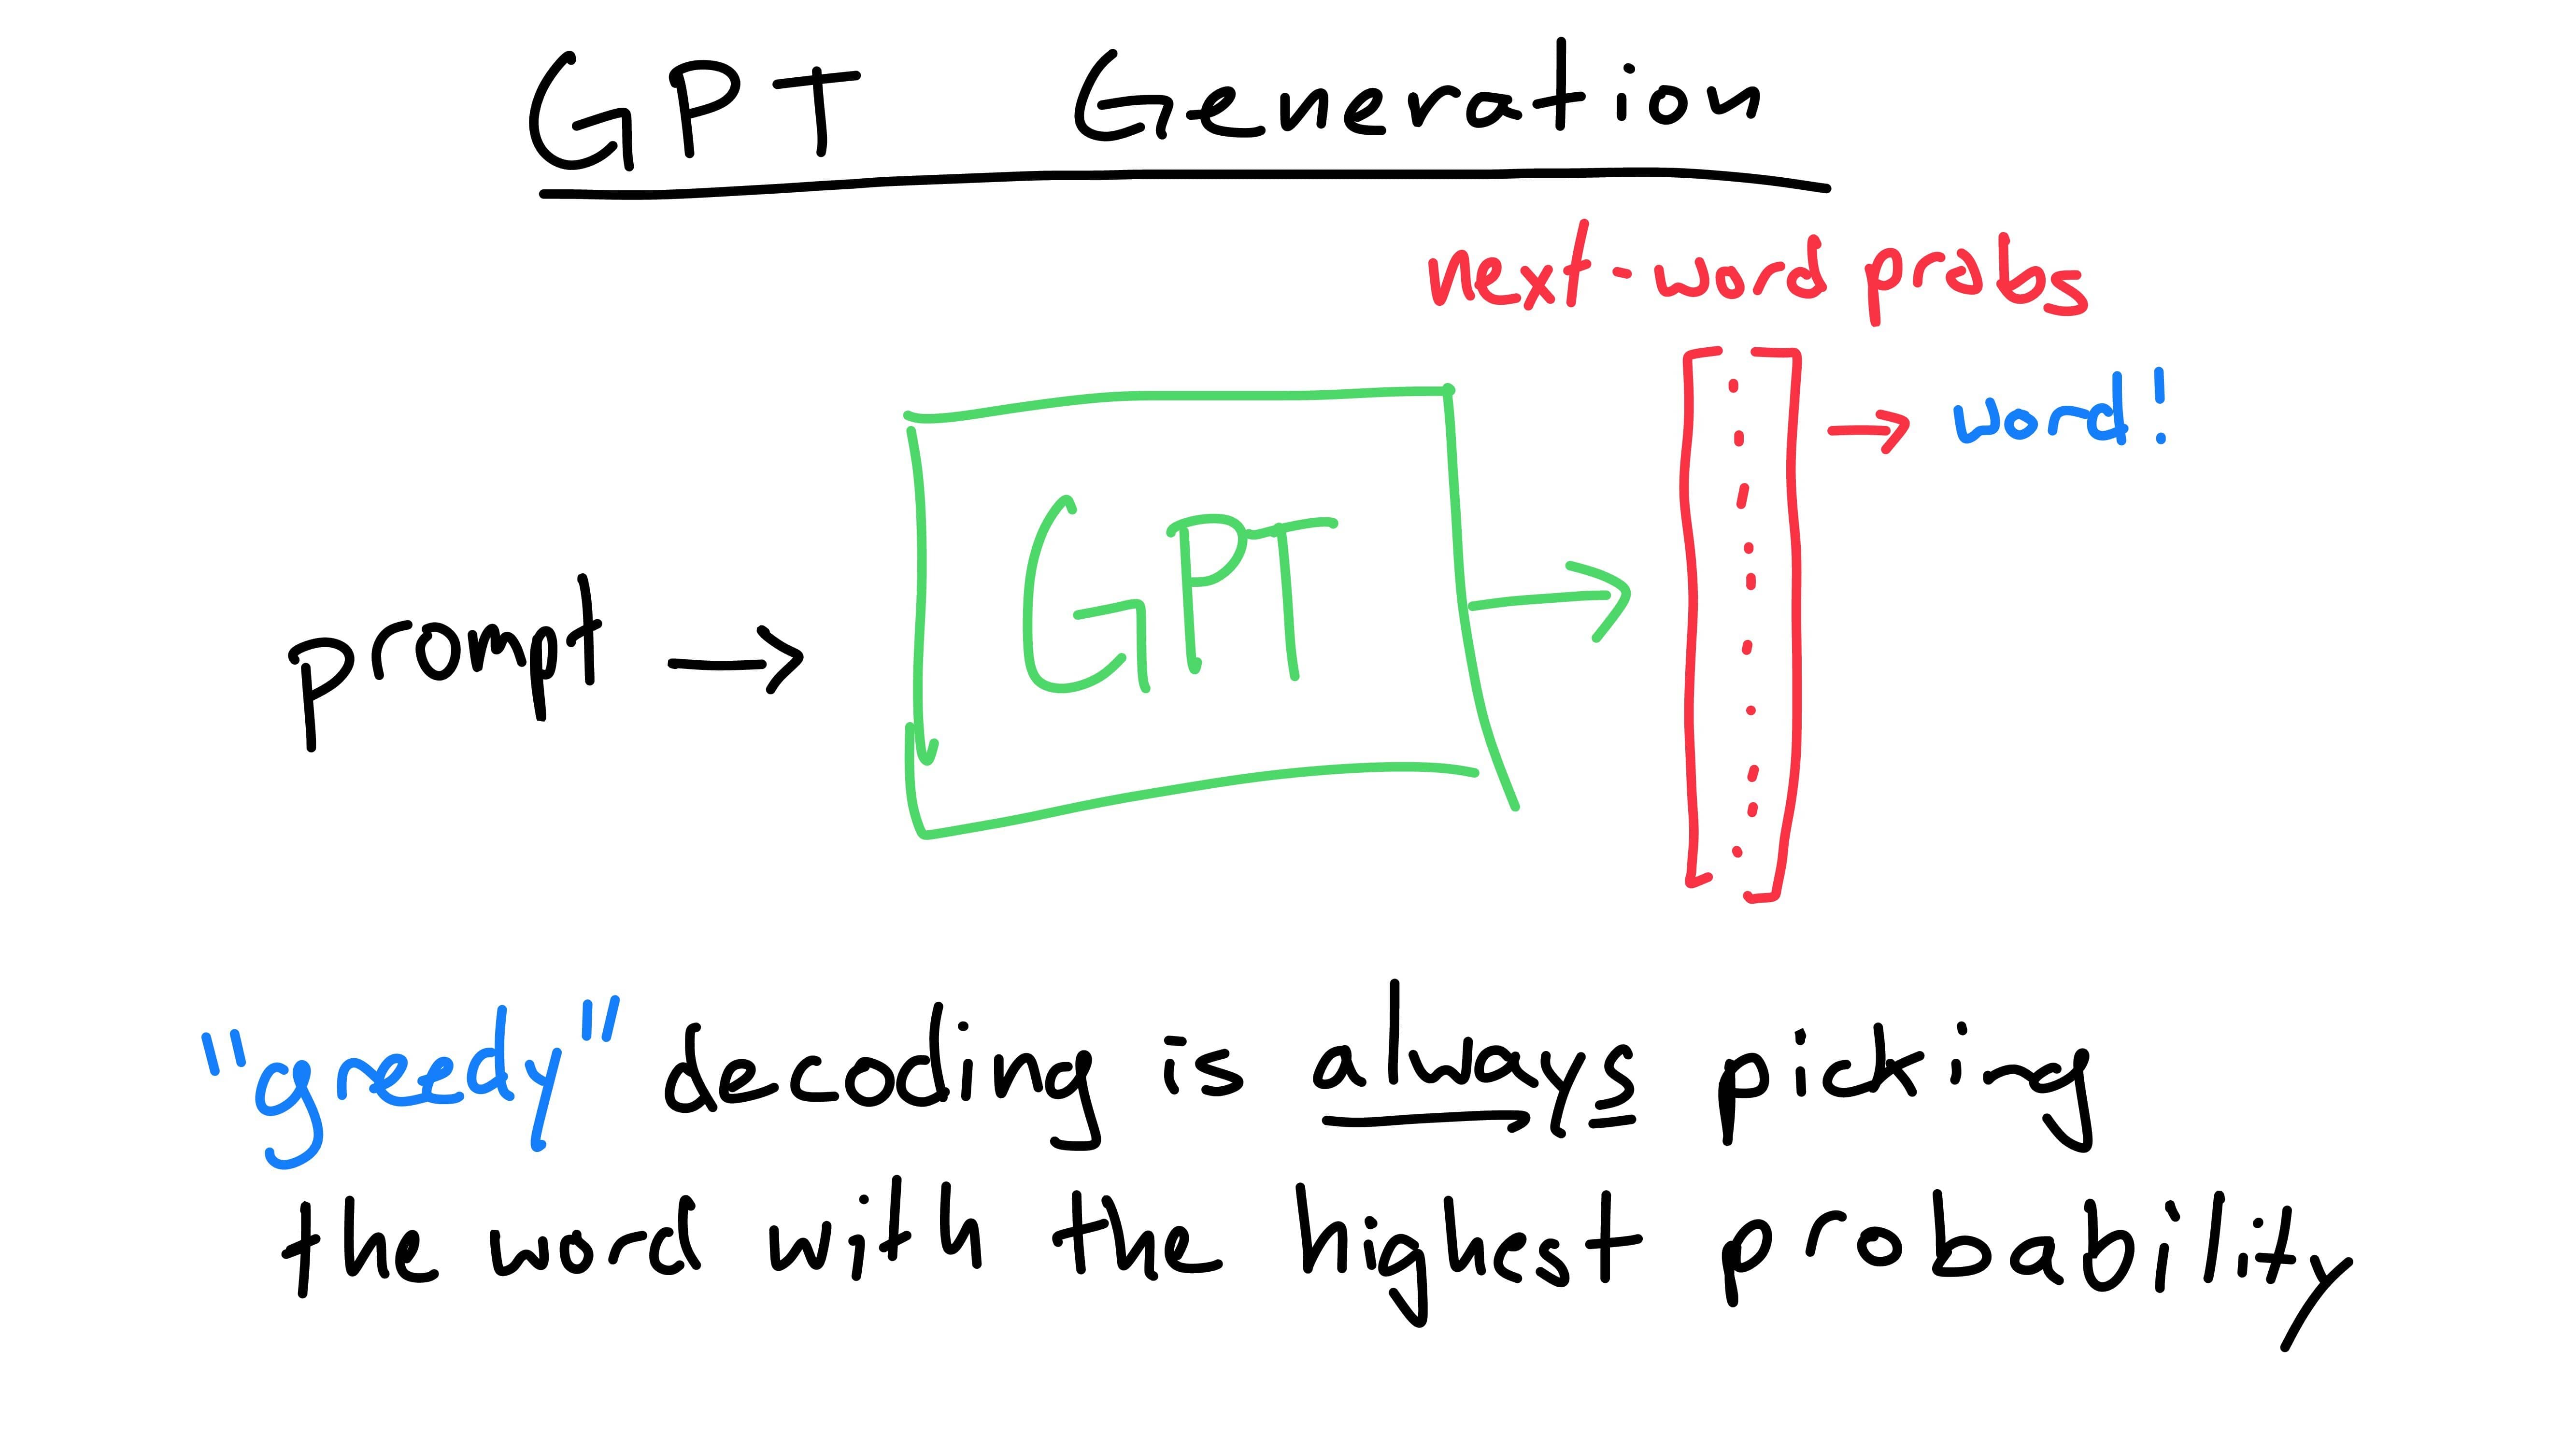 GPT Generation
next-word probs
→ word!
prompt →
GPT
→
"greedy" decoding is always picking
the word with the highest probability